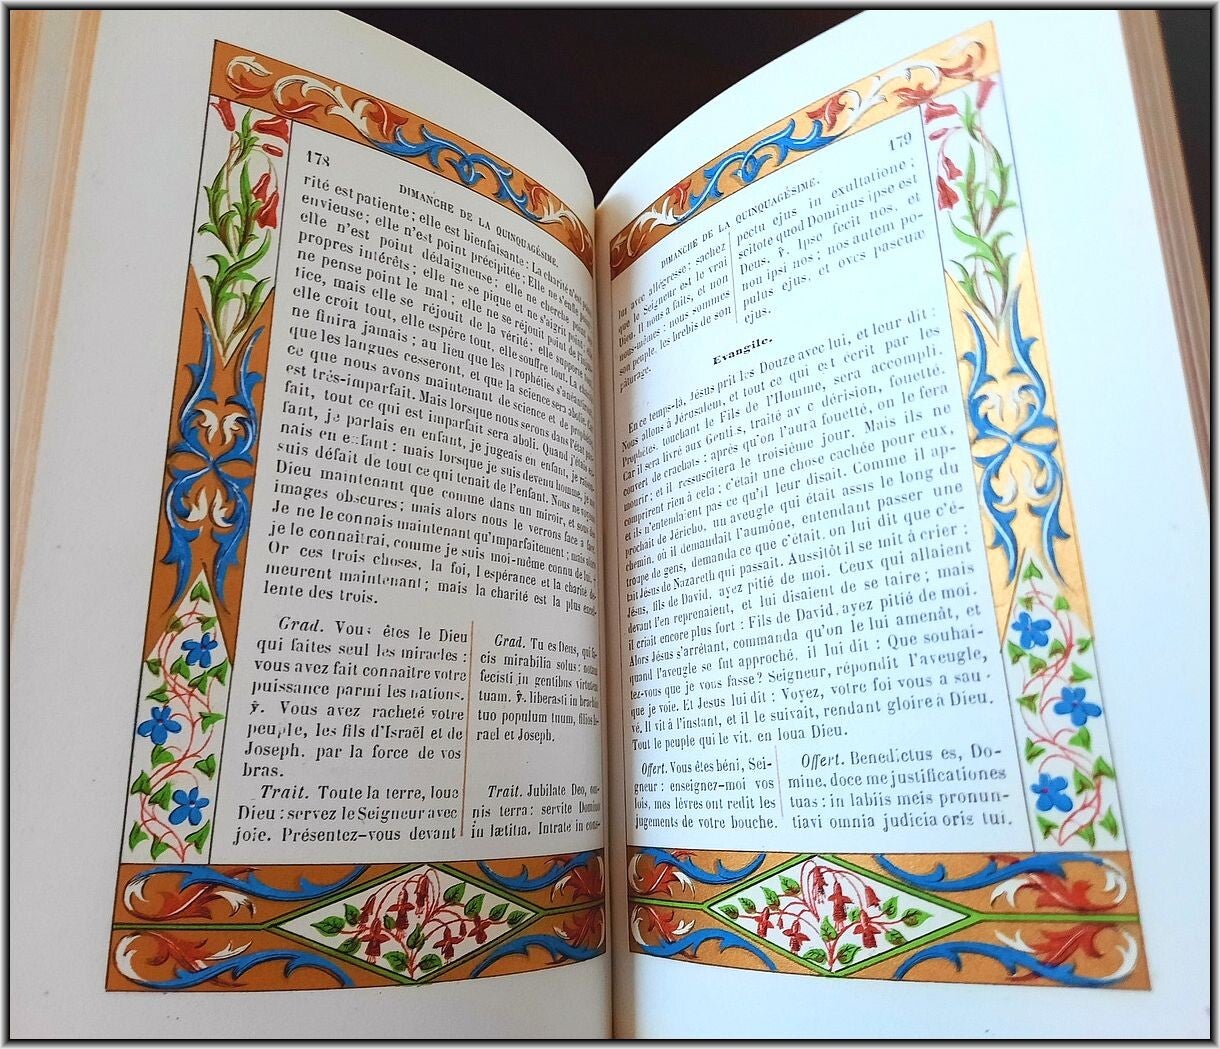 178
DIMANCHE DE LA QUINQUAGÉSIME.
rité est patiente ; elle est bienfaisante : La charité n'est point
envieuse ; elle n'est point précipitée ; Elle ne s'enfle point
elle n'est point dédaigneuse ; elle ne cherche point
propres intérêts ; elle ne se pique et ne s'aigrit point
ne pense point le mal ; elle ne se réjouit point de l'
tice, mais elle se réjouit de la vérité ; elle supporte
elle croit tout, elle espère tout, elle souffre tout. La
ne finira jamais ; au lieu que les prophéties
que les langues cesseront, et que la science sera abolie.
ce que nous avons maintenant de science et de
est très-imparfait. Mais lorsque nous serons dans l'état
fait, tout ce qui est imparfait sera aboli. Quand j'étais
fant, je parlais en enfant, je jugeais en enfant, je
nais en enfant : mais lorsque je suis devenu homme, je
suis défait de tout ce qui tenait de l'enfant. Nous ne voyons
Dieu maintenant que comme dans un miroir, et sous
images obscures ; mais alors nous le verrons face à face.
Je ne le connais maintenant qu'imparfaitement : mais alors
je le connaîtrai, comme je suis moi-même connu de lui.
Or ces trois choses, la foi, l'espérance et la charité
meurent maintenant ; mais la charité est la plus
lente des trois.
Grad. Vous êtes le Dieu
qui faites seul les miracles :
vous avez fait connaître votre
puissance parmi les nations.
℣. Vous avez racheté votre
peuple, les fils d'Israël et de
Joseph, par la force de vos
bras.
Trait. Toute la terre, louez
Dieu : servez le Seigneur avec
joie. Présentez-vous devant
Grad. Tu es Deus, qui
cis mirabilia solus : notam
fecisti in gentibus virtutem
tuam. ℣. liberasti in brachio
tuo populum tuum, filios
rael et Joseph.
Trait. Jubilate Deo,
nis terra : servite Domino
in lætitia. Intrate in
179
DIMANCHE DE LA QUINQUAGÉSIME.
lui avec allégresse ; sachez
que le Seigneur est le vrai
Dieu. Il nous a faits, et non
nous-mêmes : nous sommes
son peuple, les brebis de son
pâturage.
pectu ejus in exultatione ;
scitote quod Dominus ipse est
Deus. ℣. Ipse fecit nos, et
non ipsi nos ; nos autem po-
pulus ejus, et oves pascuæ
ejus.
Evangile.
En ce temps-là, Jésus prit les Douze avec lui, et leur dit :
Nous allons à Jérusalem, et tout ce qui est écrit par les
Prophètes, touchant le Fils de l'Homme, sera accompli.
Car il sera livré aux Gentils, traité avec dérision, fouetté,
couvert de crachats : après qu'on l'aura fouetté, on le fera
mourir ; et il ressuscitera le troisième jour. Mais ils ne
comprirent rien à cela : c'était une chose cachée pour eux,
et ils n'entendaient pas ce qu'il leur disait. Comme il ap-
prochait de Jéricho, un aveugle qui était assis le long du
chemin, où il demandait l'aumône, entendant passer une
troupe de gens, demanda ce que c'était. on lui dit que c'é-
tait Jésus de Nazareth qui passait. Aussitôt il se mit à crier :
Jésus, fils de David, ayez pitié de moi. Ceux qui allaient
devant l'en reprenaient, et lui disaient de se taire ; mais
il criait encore plus fort : Fils de David, ayez pitié de moi.
Alors Jésus s'arrêtant, commanda qu'on le lui amenât, et
quand l'aveugle se fut approché, il lui dit : Que souhai-
tez-vous que je vous fasse ? Seigneur, répondit l'aveugle,
que je voie. Et Jesus lui dit : Voyez, votre foi vous a sau-
vé. Il vit à l'instant, et il le suivait, rendant gloire à Dieu.
Tout le peuple qui le vit, en loua Dieu.
Offert. Vous êtes béni, Sei-
gneur : enseignez-moi vos
lois, mes lèvres ont redit les
jugements de votre bouche.
Offert. Benedictus es, Do-
mine, doce me justificationes
tuas : in labiis meis pronun-
tiavi omnia judicia oris tui.